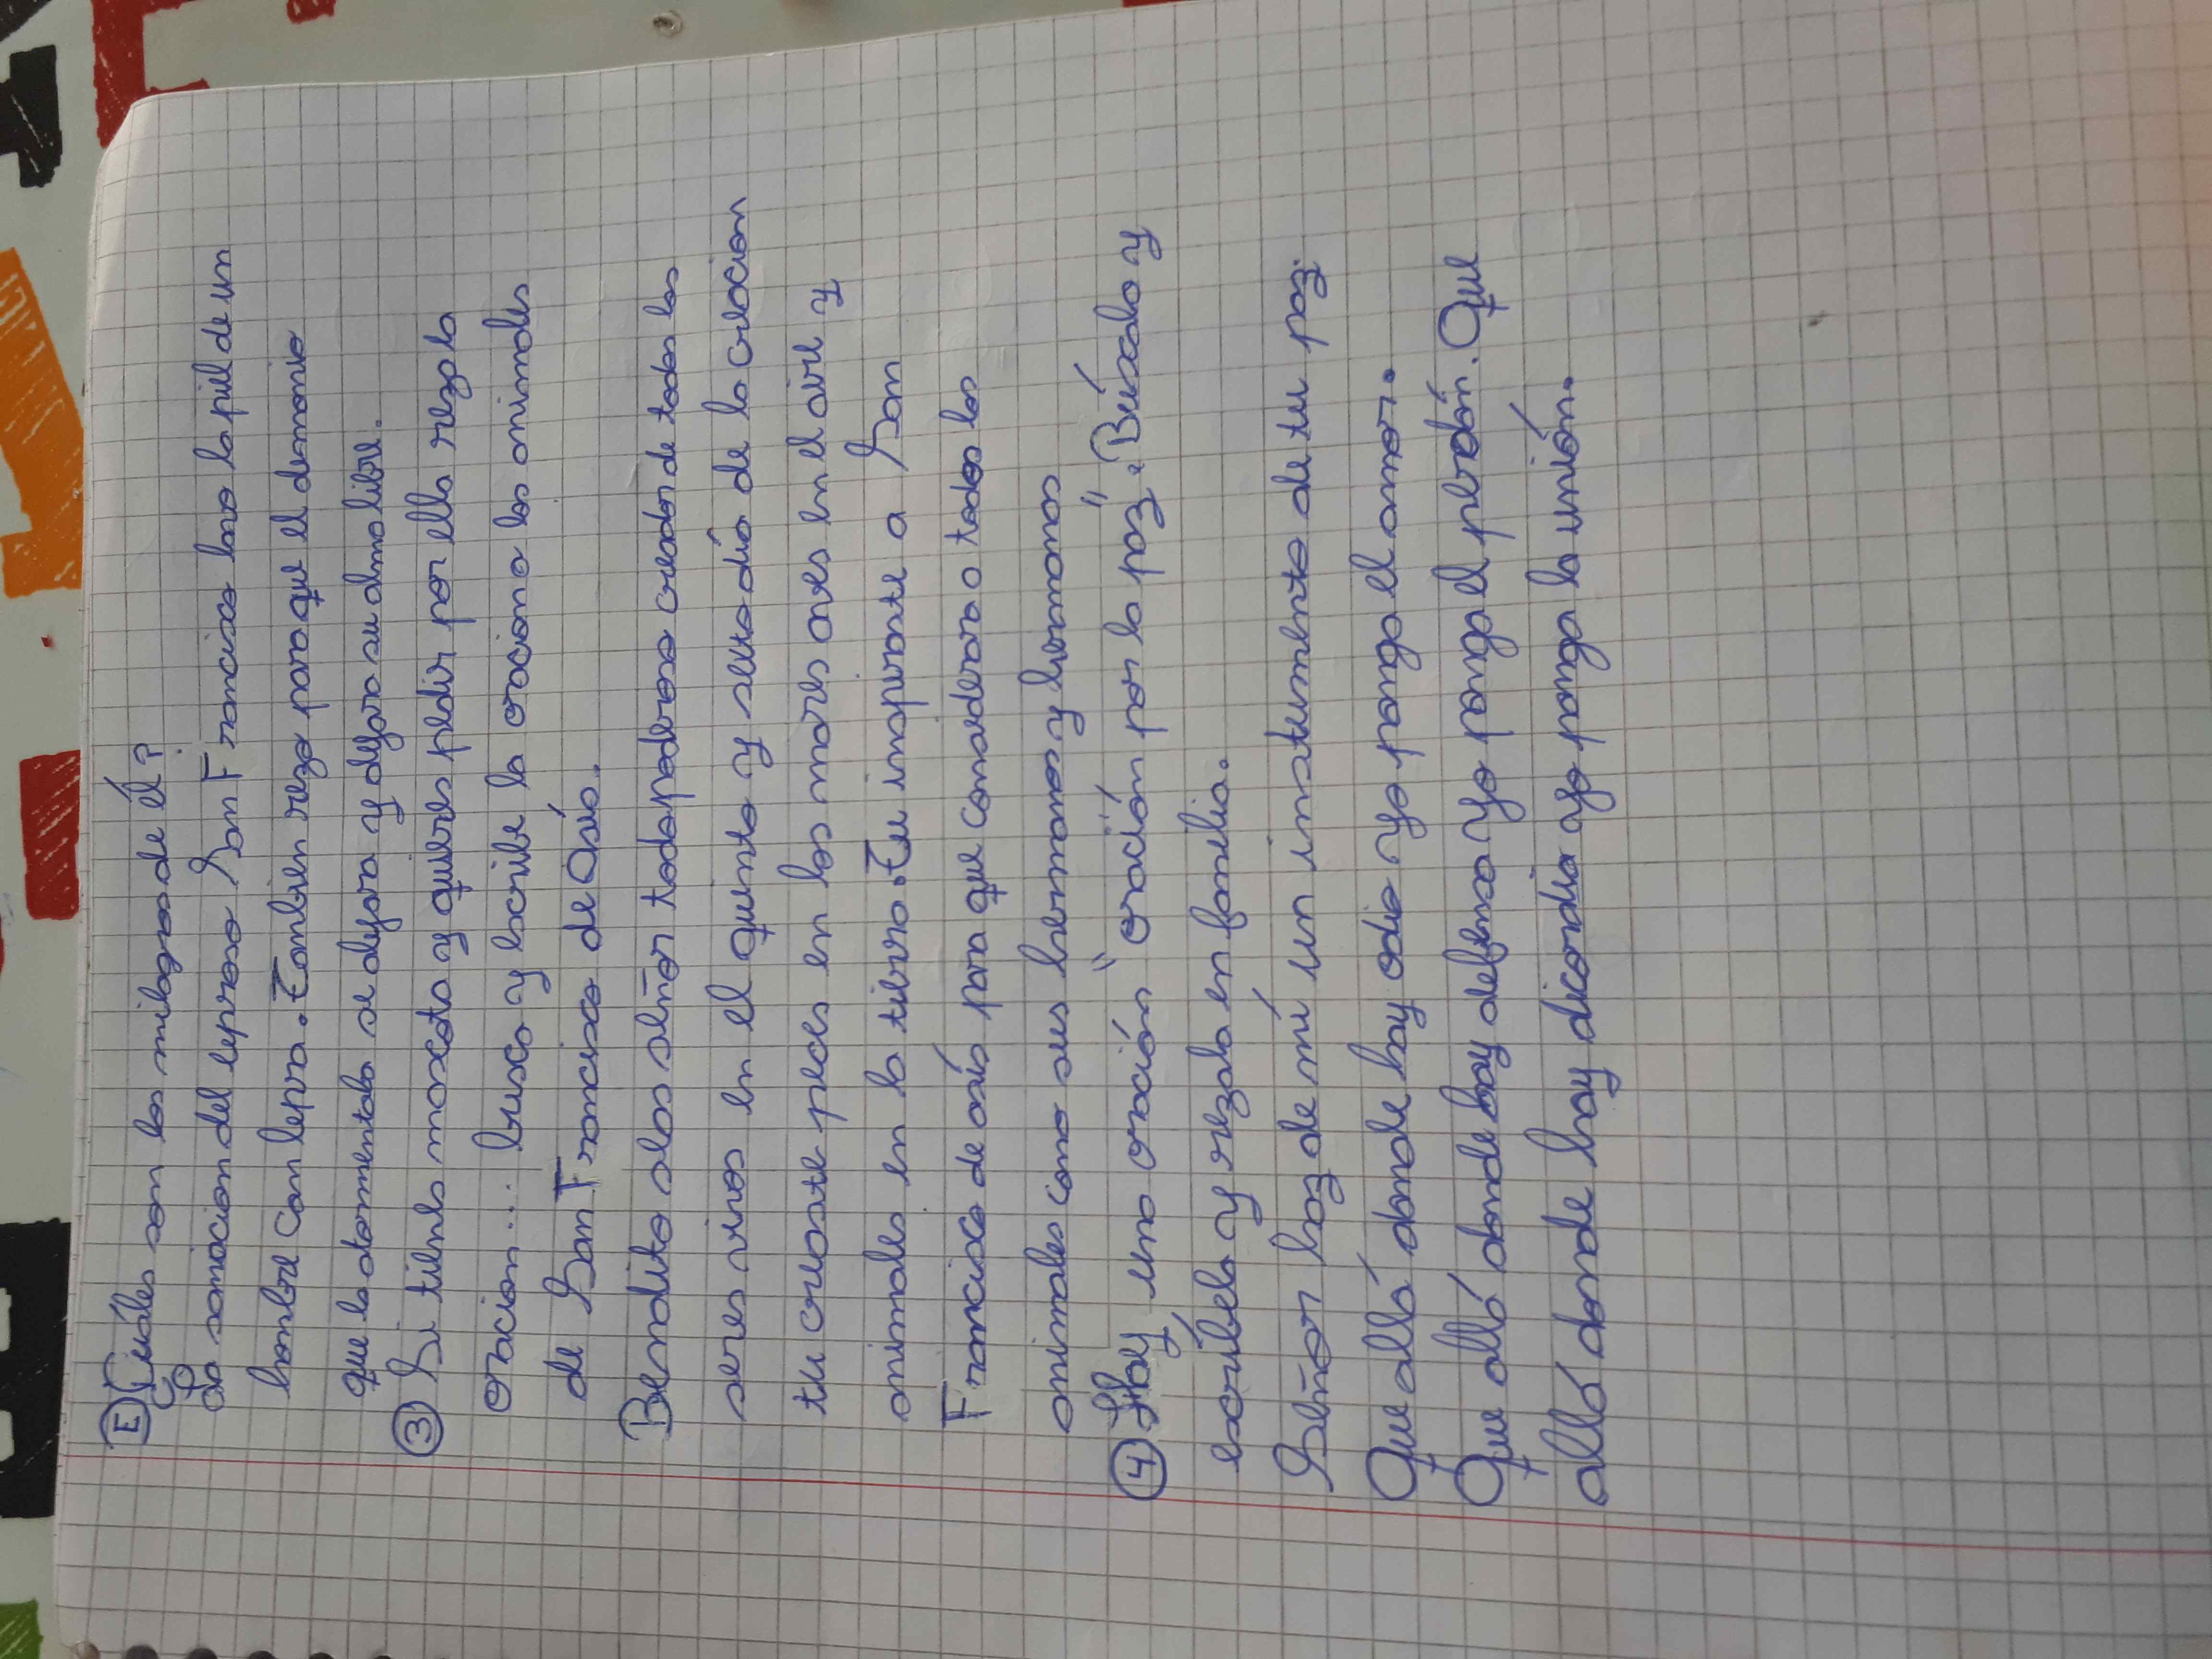 E Cuáles son los milagros de él?
La sanacion del leproso San Francisco lavo la piel de un
hombre con lepra. Tambien rezo para que el demonio
que lo atormentaba se dejara y dejara su alma libre.
3 Si tienes mascota y quieres pedir por ella rezala
oracion... busca y escribe la oracion a los animales
de San Francisco de Asís.
Bendito seas señor todopoderoso creador de todos los
seres vivos en el quinto y sexto día de la creacion
tu creaste peces en los mares aves en el aire y
animales en la tierra. Tu inspiraste a San
Francisco de asís para que considerara a todos los
animales como sus hermanos y hermanas
4 Hay una oración "oración por la paz". Búscala y
escríbela y rezala en familia.
Señor haz de mí un instrumento de tu paz.
Que allá donde hay odio yo ponga el amor.
Que allá donde hay defensa yo ponga el perdón. Que
allá donde hay dicordia yo ponga la unión.